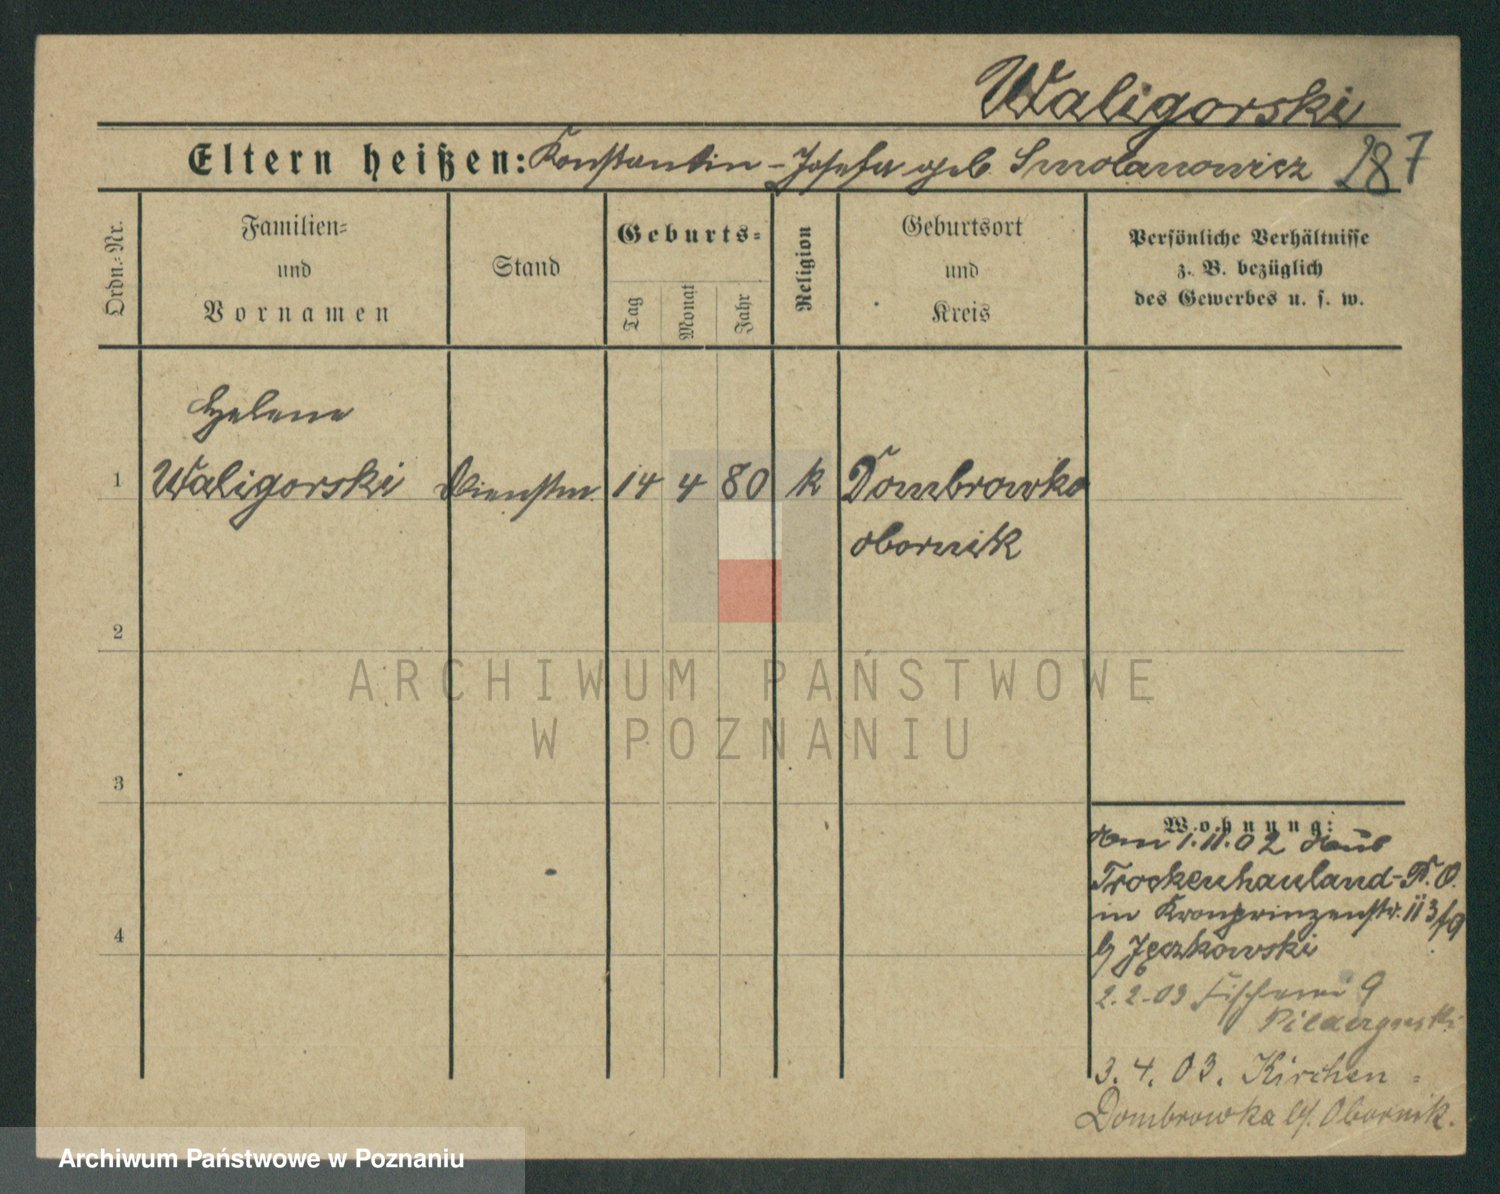 Waligorski
Eltern heißen: Konstantin - Josefa geb Smolanowicz 287
Ordn.-Nr.
Familien-
und
Vornamen
Stand
Geburts-
Tag
Monat
Jahr
Religion
Geburtsort
und
Kreis
Persönliche Verhältnisse
z. B. bezüglich
des Gewerbes u. s. w.
Helene
1 Waligorski Dienstm. 14 4 80 k Dombrowko
Obornik
2
3
4
Wohnung:
1.11.02
Trockenhauland - P. O.
in Kronprinzenstr. 113/9
b/ Jęczkowski
2.2.03 Fischerei 9
3. 4. 03. Kirchen-
Dombrowka b/. Obornik.
ARCHIWUM PAŃSTWOWE
W POZNANIU
Archiwum Państwowe w Poznaniu